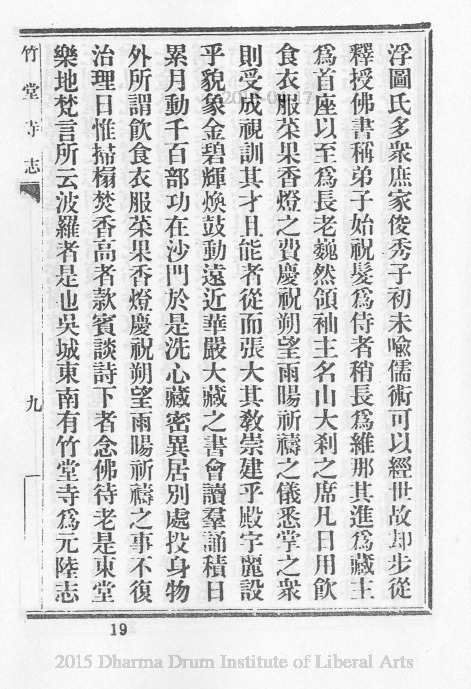 浮圖氏多衆庶家俊秀子初未喩儒術可以經世故却步從
釋授佛書稱弟子始祝髮爲侍者稍長爲維那其進爲藏主
爲首座以至爲長老巍然領袖主名山大刹之席凡日用飲
食衣服菜果香燈之費慶祝朔望雨暘祈禱之儀悉掌之衆
則受成視訓其才且能者從而張大其敎崇建乎殿宇麗設
乎貌象金碧輝煥鼓動遠近華嚴大藏之書會讀羣誦積日
累月動千百部功在沙門於是洗心藏密異居別處投身物
外所謂飲食衣服菜果香燈慶祝朔望雨暘祈禱之事不復
治理日惟掃榻焚香高者款賓談詩下者念佛待老是東堂
樂地梵言所云波羅者是也吳城東南有竹堂寺爲元陸志
竹堂寺志
九
19
2015 Dharma Drum Institute of Liberal Arts